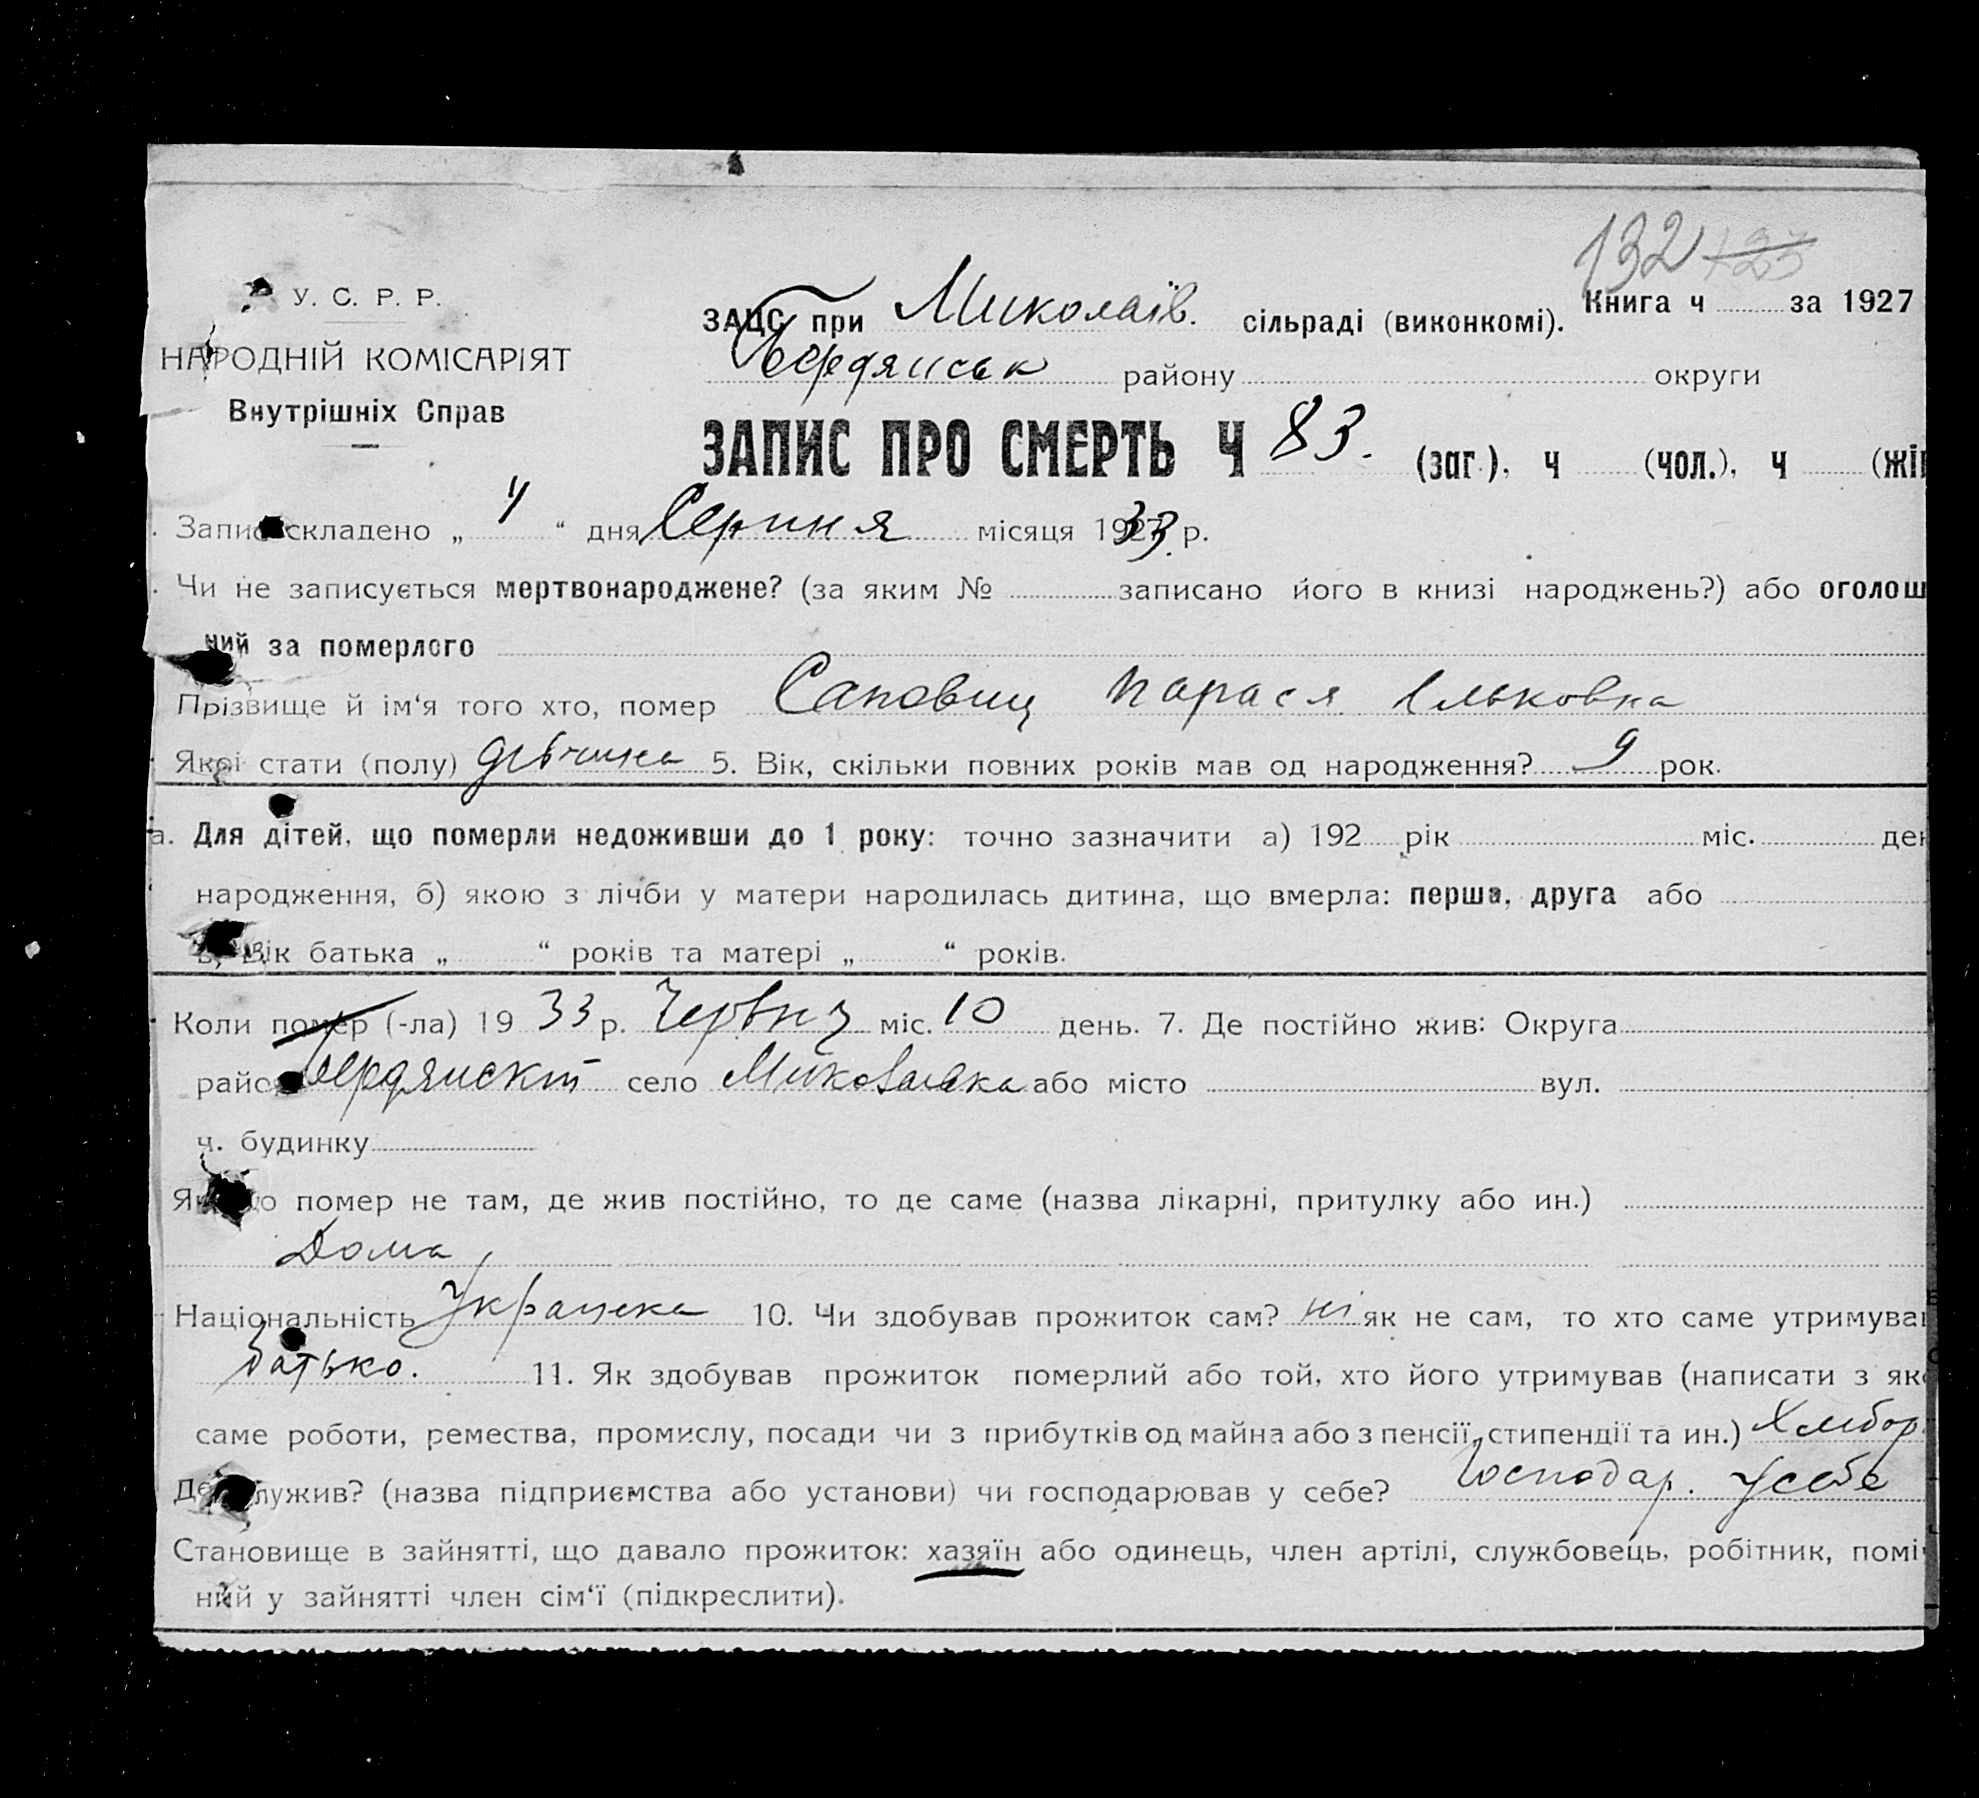 132 123
У. С. Р. Р.
НАРОДНІЙ КОМІСАРІЯТ
Внутрішніх Справ
ЗАЦС при Миколаїв. сільраді (виконкомі). Книга ч за 1927
Бердянськ району округи
ЗАПИС ПРО СМЕРТЬ Ч 83. (заг.), ч (чол.), ч (жі
Запис складено „ 4 “ дня Серпня місяця 1933 р.
Чи не записується мертвонароджене? (за яким № записано його в книзі народжень?) або оголош
ний за померлого
Прізвище й ім‘я того хто, помер Саповиц Парася Ільковна
Якої стати (полу) дівчина 5. Вік, скільки повних років мав од народження? 9 рок.
а. Для дітей, що померли недоживши до 1 року: точно зазначити а) 192 рік міс. ден
народження, б) якою з лічби у матери народилась дитина, що вмерла: перша, друга або
в) Вік батька „ “ років та матері „ “ років.
Коли помер (-ла) 19 33 р. Червня міс. 10 день. 7. Де постійно жив: Округа
район Бердянскій село Миколаївка або місто вул.
ч. будинку
Якщо помер не там, де жив постійно, то де саме (назва лікарні, притулку або ин.)
Дома
Національність Українка 10. Чи здобував прожиток сам? ні як не сам, то хто саме утримував
батько. 11. Як здобував прожиток померлий або той, хто його утримував (написати з яко
саме роботи, ремества, промислу, посади чи з прибутків од майна або з пенсії, стипендії та ин.) Хлібор.
Де служив? (назва підприємства або установи) чи господарював у себе? Господар. у себе
Становище в зайнятті, що давало прожиток: хазяїн або одинець, член артілі, службовець, робітник, поміч
ний у зайнятті член сім‘ї (підкреслити).